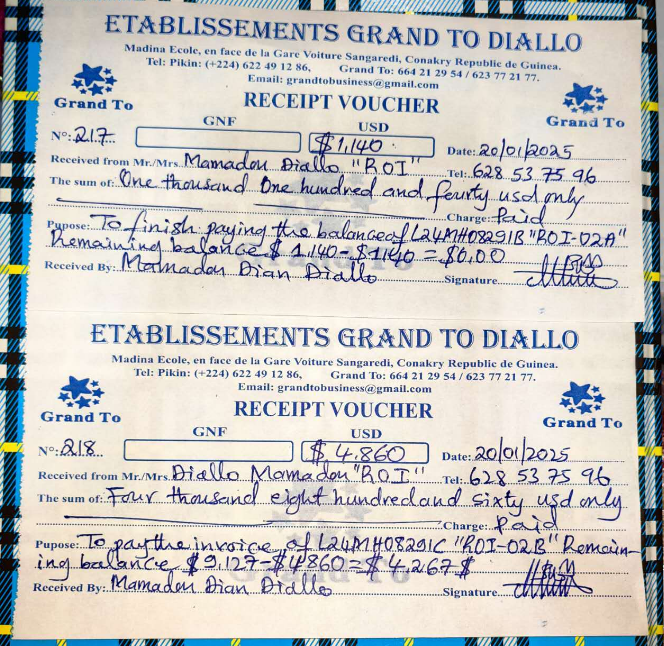 ETABLISSEMENTS GRAND TO DIALLO
Madina Ecole, en face de la Gare Voiture Sangaredi, Conakry Republic de Guinea.
Tel: Pikin: (+224) 622 49 12 86, Grand To: 664 21 29 54 / 623 77 21 77.
Email: grandtobusiness@gmail.com
Grand To RECEIPT VOUCHER Grand To
GNF USD
N°: 217 $ 1,140 Date: 20/01/2025
Received from Mr./Mrs. Mamadou Diallo "ROI" Tel: 628 53 75 96
The sum of: One thousand One hundred and fourty usd only
Charge: Paid
Pupose: To finish paying the balance of L24MH08291B "ROI-02A"
Remaining balance $ 1,140-$1140 = $0,00
Received By: Mamadou Dian Diallo Signature
ETABLISSEMENTS GRAND TO DIALLO
Madina Ecole, en face de la Gare Voiture Sangaredi, Conakry Republic de Guinea.
Tel: Pikin: (+224) 622 49 12 86, Grand To: 664 21 29 54 / 623 77 21 77.
Email: grandtobusiness@gmail.com
Grand To RECEIPT VOUCHER Grand To
GNF USD
N°: 218 $ 4,860 Date: 20/01/2025
Received from Mr./Mrs. Diallo Mamadou "ROI" Tel: 628 53 75 96
The sum of: Four thousand eight hundred and sixty usd only
Charge: Paid
Pupose: To pay the invoice of L24MH08291C "ROI-02B" Remain-
ing balance $ 9,127-$4860 = $ 4,267 $
Received By: Mamadou Dian Diallo Signature